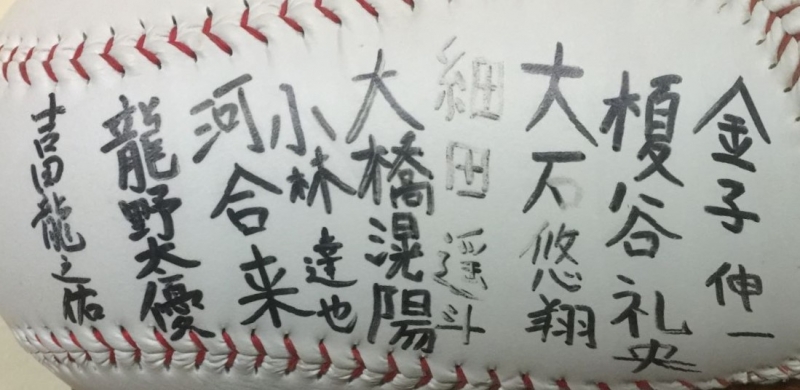 金子伸一
榎谷礼央
大石悠翔
細田遥斗
大橋滉陽
小林達也
河合来
龍野太優
吉田龍之佑